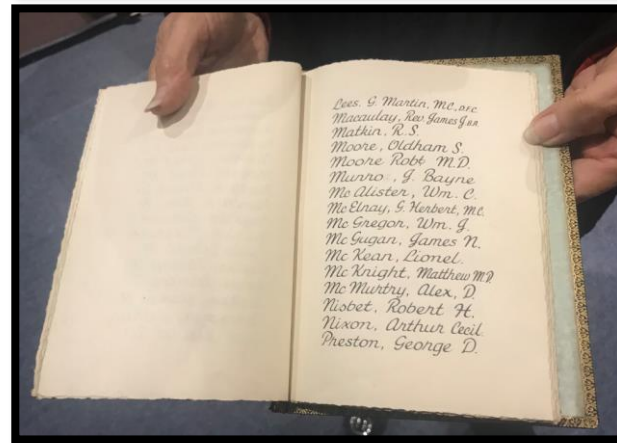 Lees. G. Martin, M.C., D.F.C.
Macaulay, Rev. James J.
Matkin, R.S.
Moore, Oldham S.
Moore Robt M.D.
Munro, J. Bayne
Mc Alister, Wm. C.
Mc Elnay, G. Herbert, M.C.
Mc Gregor, Wm. J.
Mc Gugan, James N.
Mc Kean, Lionel.
Mc Knight, Matthew M.D.
Mc Murtry, Alex, D.
Nisbet, Robert H.
Nixon, Arthur Cecil
Preston, George D.